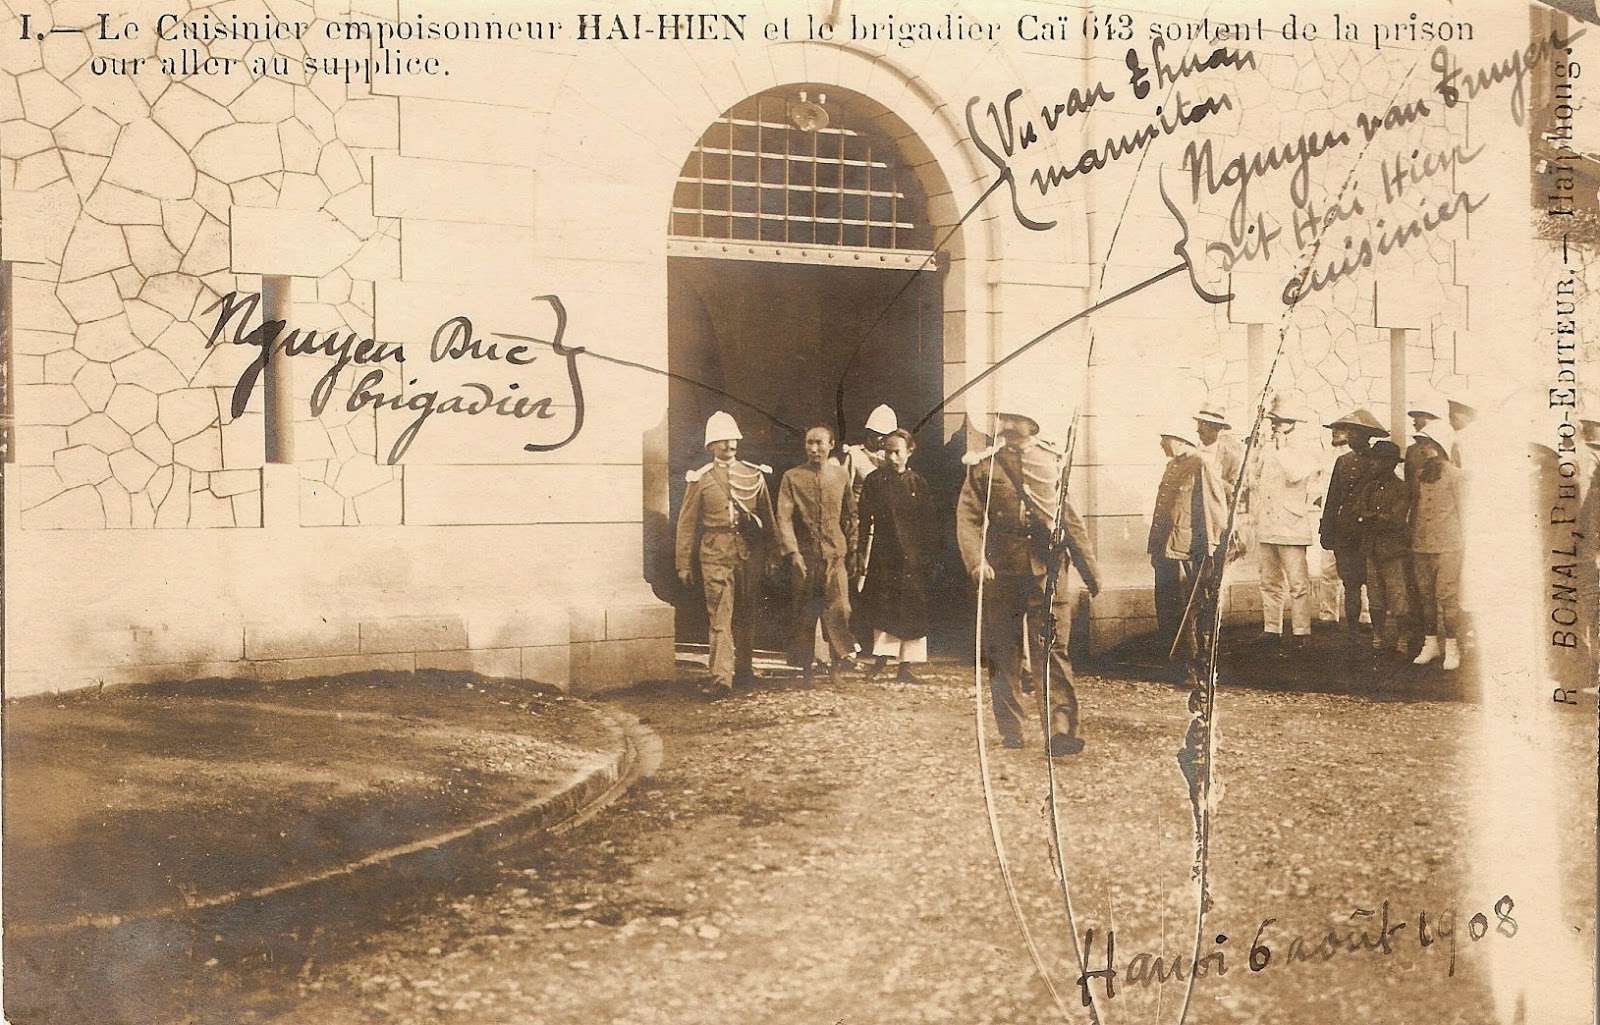 I. — Le Cuisinier empoisonneur HAI-HIEN et le brigadier Caï 643 sortent de la prison
our aller au supplice.
Vu van Thuan
marmiton
Nguyen van Truyen
dit Hai Hien
cuisinier
Nguyen Duc
brigadier
R. BONAL, PHOTO-EDITEUR. — Haïphong.
Hanoi 6 août 1908